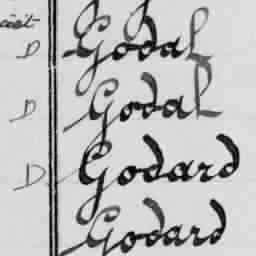 D Godal
D Godal
D Godard
Godard